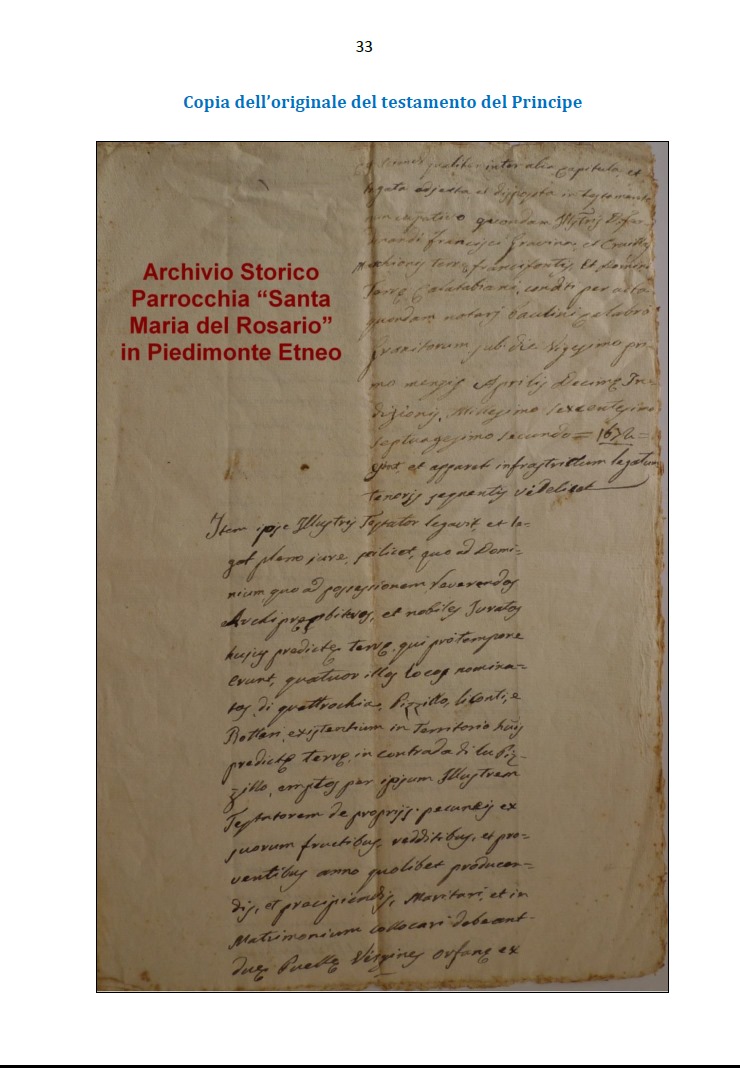 33
Copia dell’originale del testamento del Principe
Archivio Storico
Parrocchia “Santa
Maria del Rosario”
in Piedimonte Etneo
qualiter inter alia capitula, et
legata in testamento
quondam Illustris
Francisci Gravina, et Cruillas
Marchionis terrę francifontis, et Domini
Terrę Calatabiani, conditi per acta
quondam notarij Paulini Calabrò
sub die Vigesimo pri-
mo mensis Aprilis Decimę In-
dizionis, Millesimo sexcentesimo
septuagesimo secundo = 1672 =
et apparet infrascrittum legatum
tenoris sequentis videlicet
Item ipse Illustris Testator legavit et le-
gat pleno iure, scilicet, quo ad Domi-
nium quo ad possessionem Reverendos
Archipresbiteros, et nobiles Iuratos
hujus predictę terrę, qui pro tempore
erunt, quatuor illos locos nomina-
tos, di quattrochia, Pizzillo, liconti, e
existentium in Territorio hujus
predictę terrę, in contrada di lu Piz-
zillo, emptos per ipsum Illustrem
Testatorem de proprijs pecunijs ex
quorum fructibus, redditibus, et pro-
ventibus anno quolibet producen=
dis, et precipiendis, Maritari, et in
Matrimonium collocari debeant
duę Puellę Virgines orfanę ex